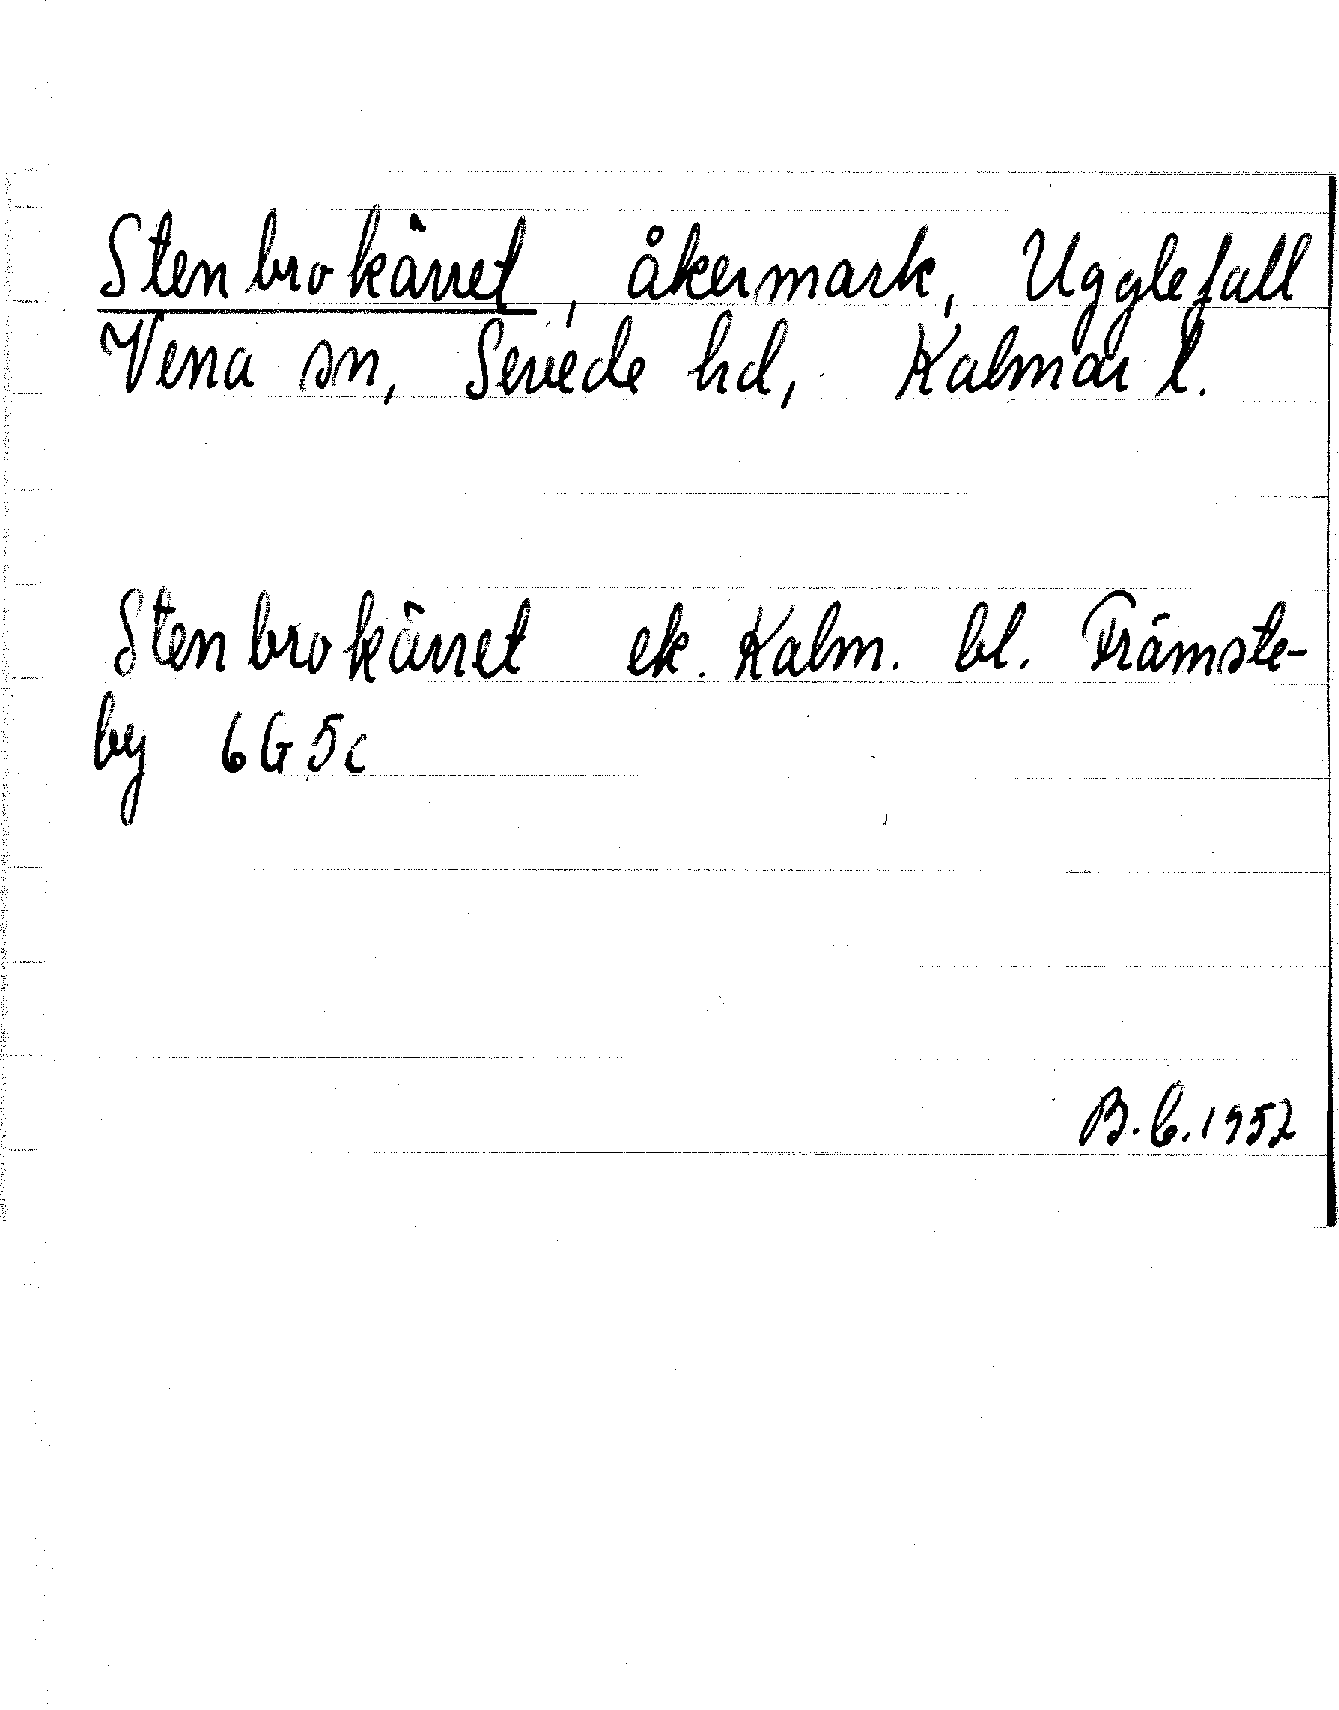 Stenbrokärret, åkermark, Ugglefall
Vena sn, Sevede hd, Kalmar l.
Stenbrokärret ek. Kalm. bl. Främste-
by 6G5c
B.C.1952